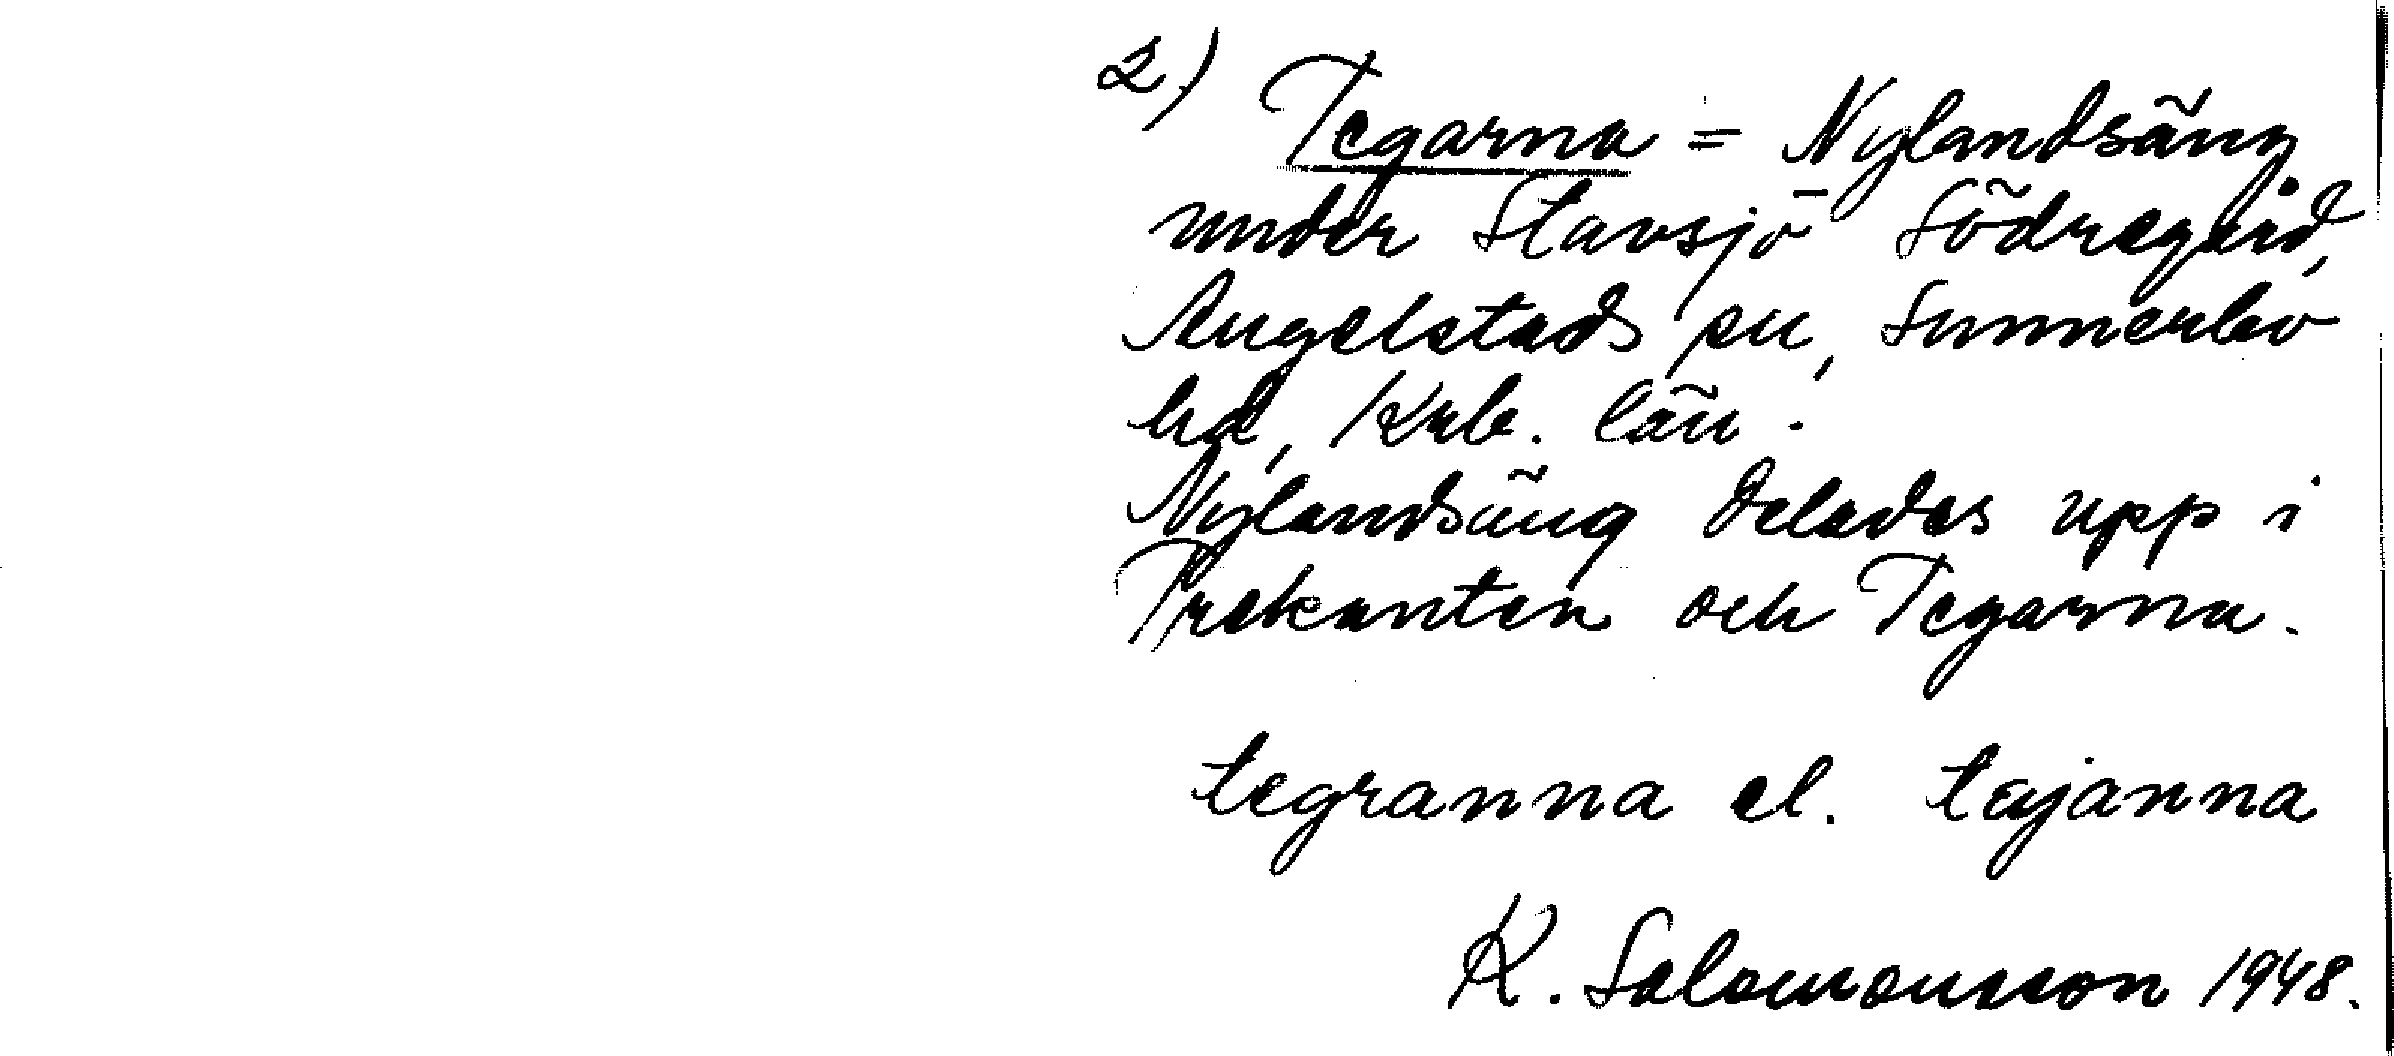 2)
Tegarna = Nylandsäng
under Stavsjö Södregård,
Angelstads sn, Sunnerbo
hd, Krb. län.
Nylandsäng delades upp i
Trekanten och Tegarna.
tegranna el. tajanna
K. Salomonsson 1948.